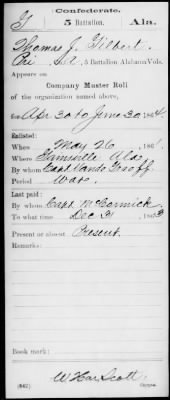 Confederate.
G 5 Battalion. Ala.
Thomas J. Gilbert.
Pri S.A., 5 Battalion, Alabama Vols.
Appears on
Company Muster Roll
of the organization named above,
for Apr 30 to June 30, 1864.
Enlisted:
When May 26, 1861.
Where Ala
By whom Capt
Period War.
Last paid:
By whom Capt. McCormick.
To what time Dec 31, 1863
Present or absent Present.
Remarks:
Book mark:
W Har Scott
(642) Copyist.